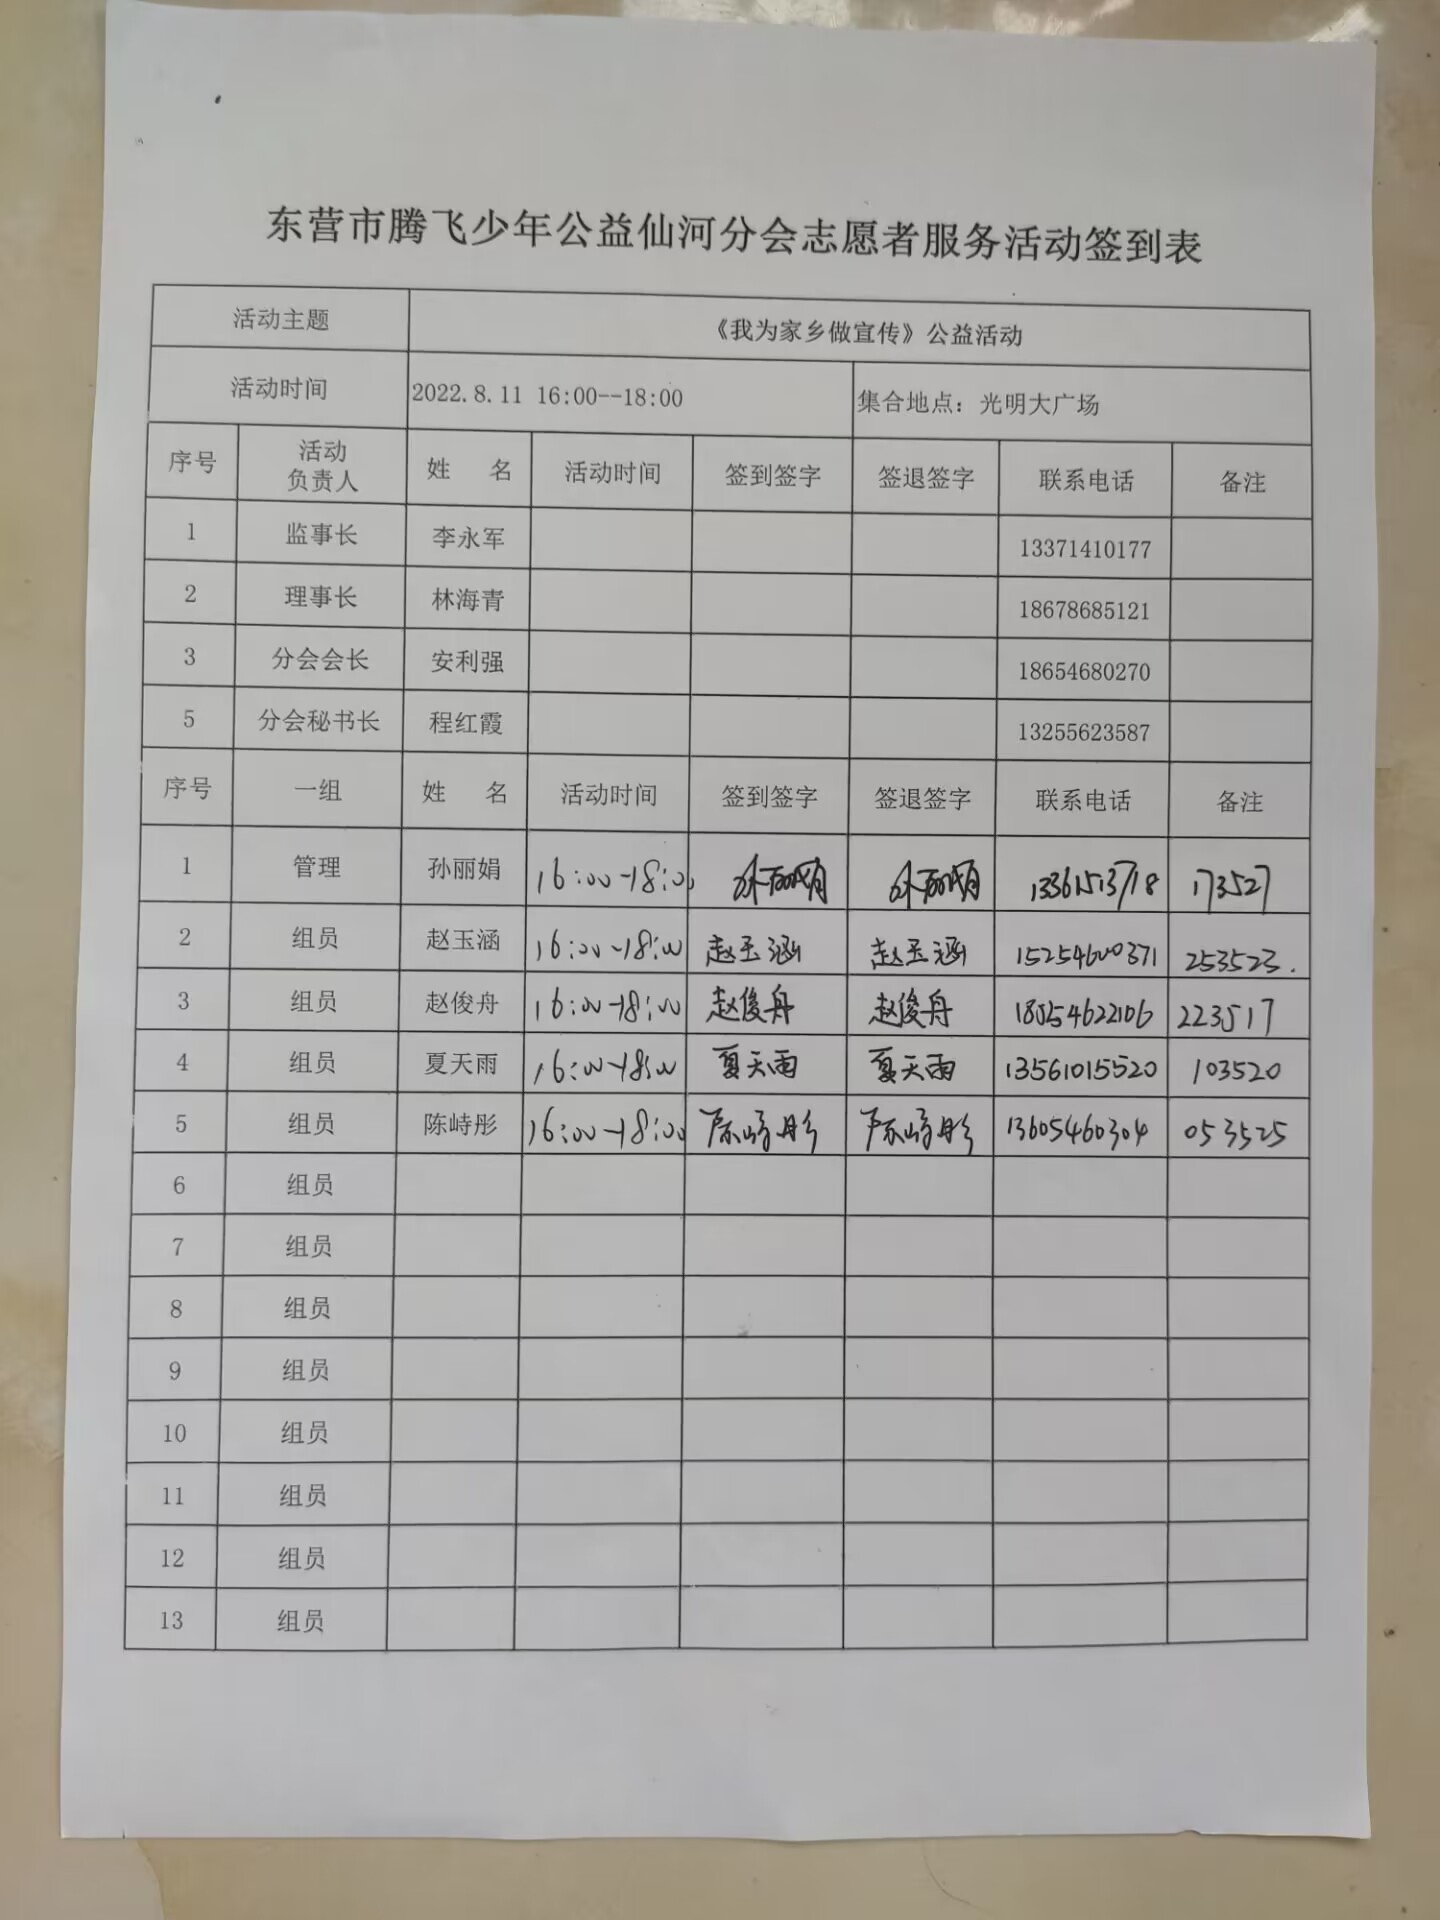 东营市腾飞少年公益仙河分会志愿者服务活动签到表
活动主题 《我为家乡做宣传》公益活动
活动时间 2022.8.11 16:00--18:00 集合地点：光明大广场
序号 活动负责人 姓 名 活动时间 签到签字 签退签字 联系电话 备注
1 监事长 李永军 13371410177
2 理事长 林海青 18678685121
3 分会会长 安利强 18654680270
5 分会秘书长 程红霞 13255623587
序号 一组 姓 名 活动时间 签到签字 签退签字 联系电话 备注
1 管理 孙丽娟 16:00-18:00 孙丽娟 孙丽娟 13361513718 173527
2 组员 赵玉涵 16:00-18:00 赵玉涵 赵玉涵 15254600371 253523.
3 组员 赵俊舟 16:00-18:00 赵俊舟 赵俊舟 18254622106 223517
4 组员 夏天雨 16:00-18:00 夏天雨 夏天雨 13561015520 103520
5 组员 陈峙彤 16:00-18:00 陈峙彤 陈峙彤 13605460304 053525
6 组员
7 组员
8 组员
9 组员
10 组员
11 组员
12 组员
13 组员